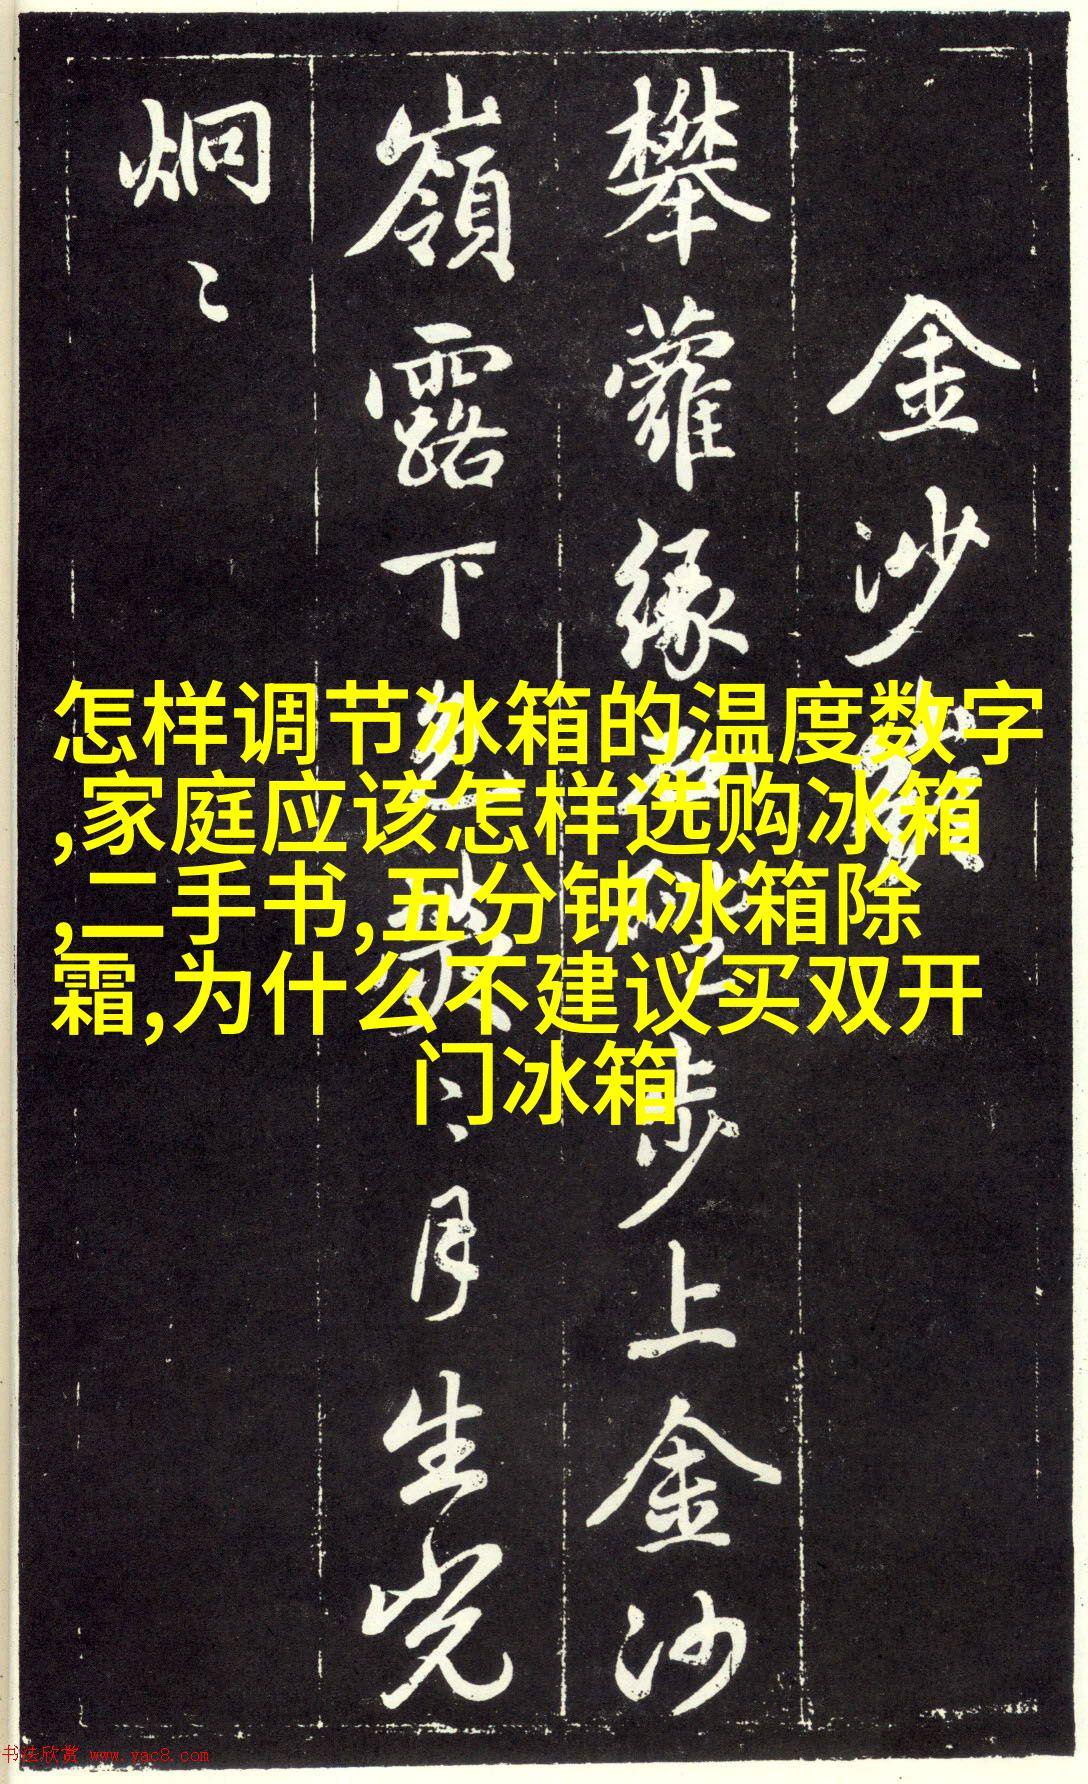 金沙
攀蘿緣步上金沙
嶺露下月生光
炯〻
怎样调节冰箱的温度数字
,家庭应该怎样选购冰箱
,二手书,五分钟冰箱除
霜,为什么不建议买双开
门冰箱
书法欣赏 www.yac8.com